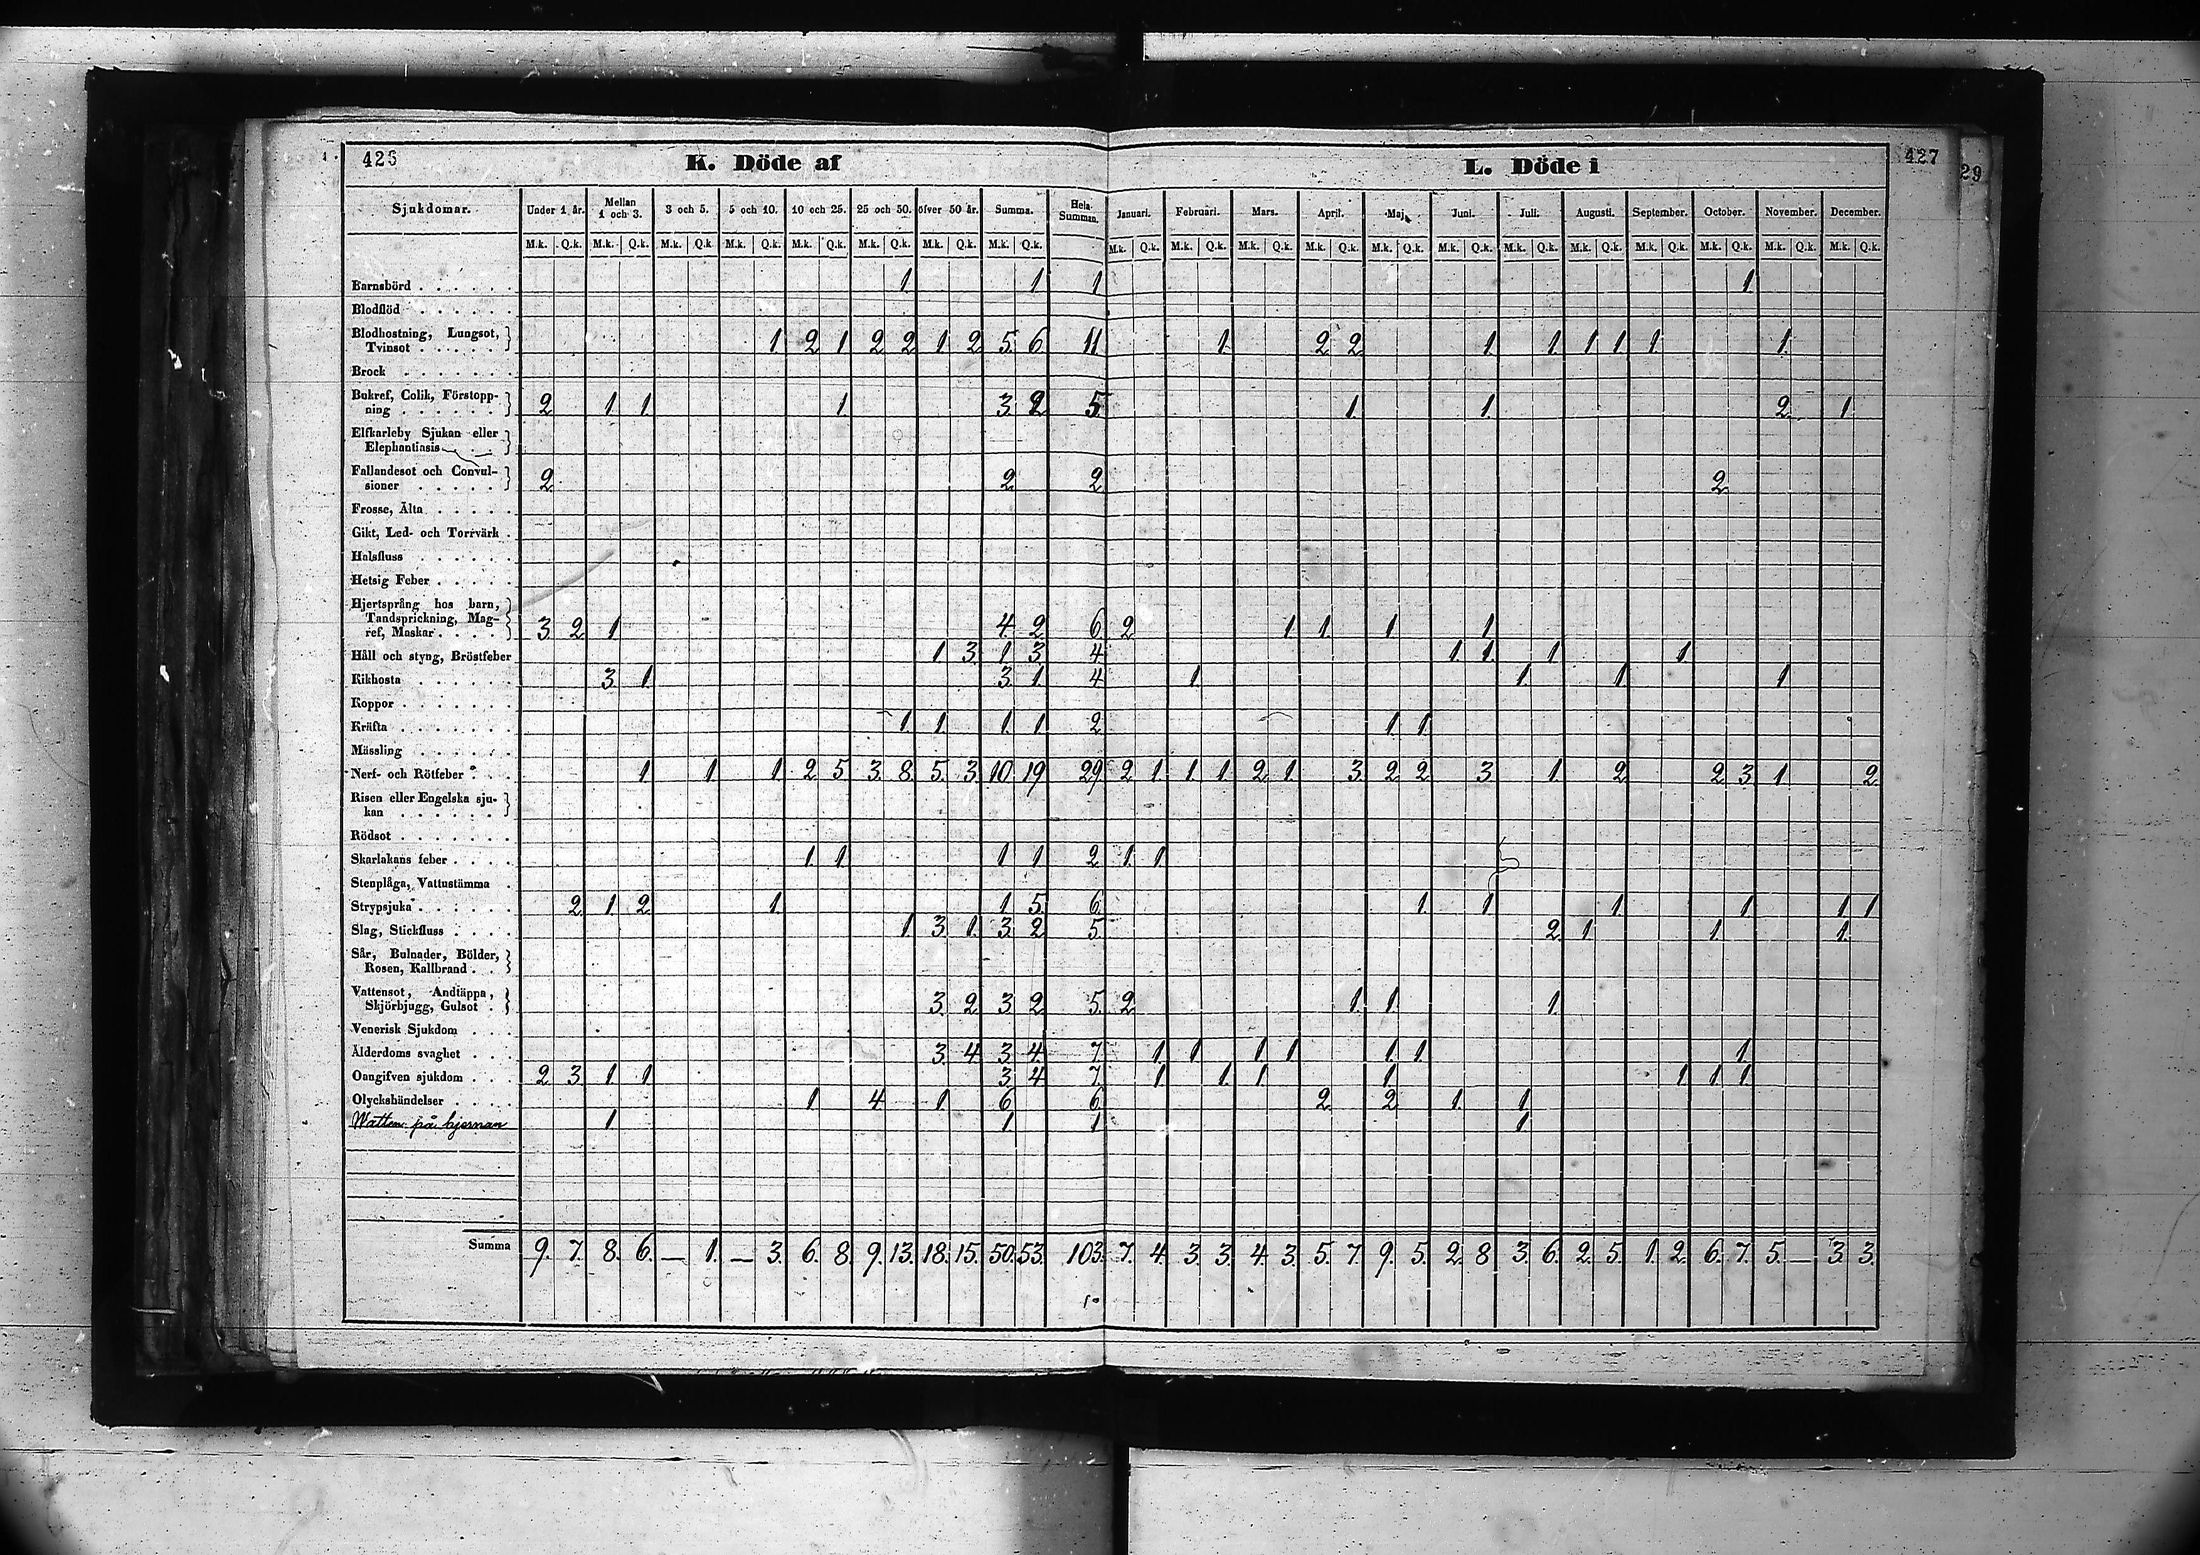 426 K. Döde af L. Döde i 427
29
Sjukdomar. Under 1 år. Mellan 1 och 3. 3 och 5. 5 och 10. 10 och 25. 25 och 50. öfver 50 år. Summa. Hela Summan. Januari. Februari. Mars. April. Maj. Juni. Juli. Augusti. September. October. November. December.
M.k. Q.k. M.k. Q.k. M.k. Q.k. M.k. Q.k. M.k. Q.k. M.k. Q.k. M.k. Q.k. M.k. Q.k. M.k. Q.k. M.k. Q.k. M.k. Q.k. M.k. Q.k. M.k. Q.k. M.k. Q.k. M.k. Q.k. M.k. Q.k. M.k. Q.k. M.k. Q.k. M.k. Q.k. M.k. Q.k.
Barnsbörd . . . . . . 1 1 1 1
Blodflöd . . . . . .
Blodhostning, Lungsot,
Tvinsot . . . . . 1. 2 1 2 2 1. 2 5. 6 11 1. 2 2 1. 1. 1 1 1. 1.
Brock . . . . . . .
Bukref, Colik, Förstopp-
ning . . . . . . 2 1 1 1 3 2 5 1. 1. 2 1
Elfkarleby Sjukan eller
Elephantiasis . . .
Fallandesot och Convul-
sioner . . . . . 2 2 2 2
Frosse, Älta . . . . .
Gikt, Led- och Torrvärk .
Halsfluss . . . . .
Hetsig Feber . . . . .
Hjertsprång hos barn,
Tandsprickning, Mag-
ref, Maskar . . . . 3 2 1 4 2 6 2 1 1. 1 1
Håll och styng, Bröstfeber 1 3 1 3 4 1. 1. 1 1
Kikhosta . . . . . . 3 1. 3. 1. 4 1 1. 1 1
Koppor . . . . . . .
Kräfta . . . . . . . 1 1. 1. 1 2 1 1
Mässling . . . . . .
Nerf- och Rötfeber . . . 1 1 1. 2 5 3. 8. 5. 3 10. 19 29 2 1. 1. 1 2 1. 3 2 2 3 1. 2 2 3 1 2
Risen eller Engelska sju-
kan . . . . . .
Rödsot . . . . . . .
Skarlakans feber . . . . 1 1 1 1 2 1. 1
Stenplåga, Vattustämma .
Strypsjuka . . . . . . 2 1. 2 1. 1 5 6 1. 1 1 1 1 1
Slag, Stickfluss . . . . 1. 3 1. 3 2 5 2 1 1. 1.
Sår, Bulnader, Bölder,
Rosen, Kallbrand . .
Vattensot, Andtäppa,
Skjörbjugg, Gulsot . 3. 2 3 2 5. 2 1. 1 1.
Venerisk Sjukdom . . .
Ålderdoms svaghet . . . 3. 4 3 4. 7 1. 1 1 1 1. 1. 1.
Oangifven sjukdom . . . 2 3 1 1 3 4 7. 1 1. 1 1 1 1 1
Olyckshändelser . . . . 1 4 1 6 6 2 2 1. 1
Watten på hjernan 1 1 1 1
Summa 9. 7. 8. 6. — 1. — 3. 6. 8. 9. 13. 18. 15. 50. 53. 103. 7. 4. 3. 3. 4. 3. 5. 7. 9. 5. 2. 8 3. 6. 2. 5. 1. 2. 6. 7. 5. — 3. 3.